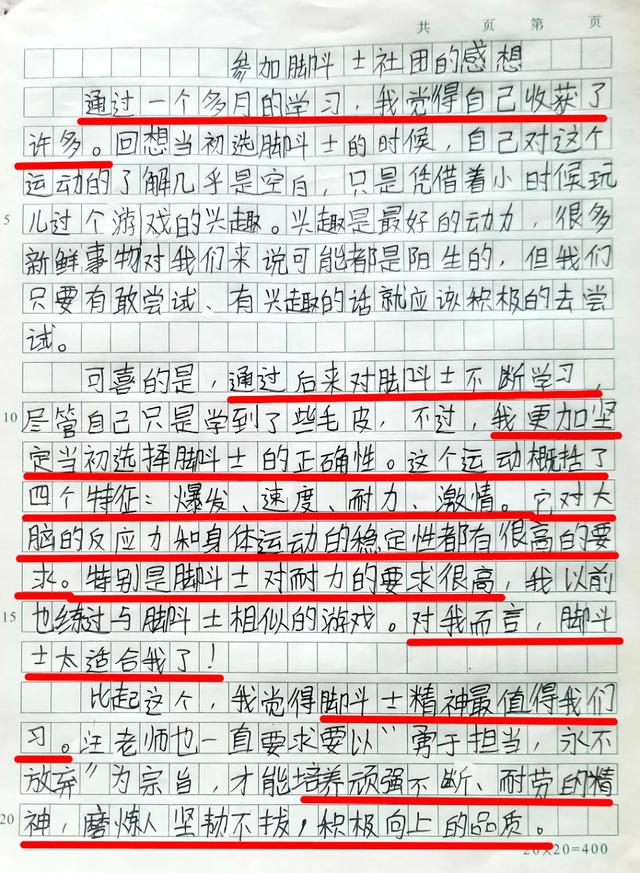 共 页 第 页
参加脚斗士社团的感想
通过一个多月的学习，我觉得自己收获了
许多。回想当初选脚斗士的时候，自己对这个
运动的了解几乎是空白，只是凭借着小时候玩
5 儿过个游戏的兴趣。兴趣是最好的动力，很多
新鲜事物对我们来说可能都是陌生的，但我们
只要有敢尝试、有兴趣的话就应该积极的去尝
试。
可喜的是，通过后来对脚斗士不断学习，
10 尽管自己只是学到了些毛皮，不过，我更加坚
定当初选择脚斗士的正确性。这个运动概括了
四个特征：爆发、速度、耐力、激情。它对大
脑的反应力和身体运动的稳定性都有很高的要
求。特别是脚斗士对耐力的要求很高，我以前
15 也练过与脚斗士相似的游戏。对我而言，脚斗
士太适合我了！
比起这个，我觉得脚斗士精神最值得我们
习。汪老师也一直要求要以“勇于担当，永不
放弃”为宗旨，才能培养顽强不断、耐劳的精
20 神，磨炼人坚韧不拔，积极向上的品质。
20×20=400